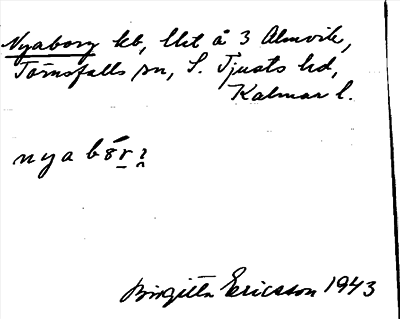 Nyaborg kb, lht å 3 Almvik,
Törnsfalls sn, S. Tjusts hd,
Kalmar l.
nyabór
Birgitta Ericsson 1943